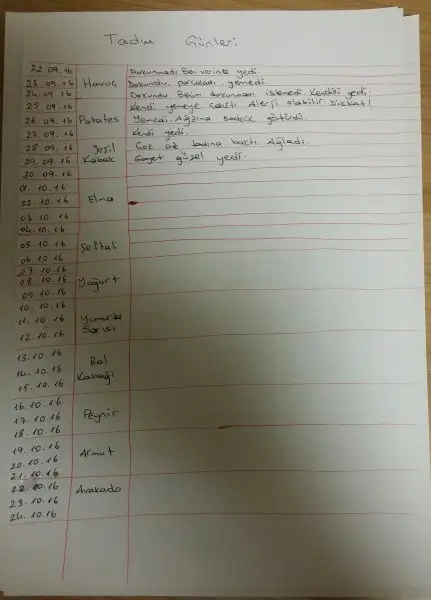 Tadım Günleri
22.09.16 Dokunmadı Ben verince yedi.
23.09.16 Havuç Dokundu, parçaladı yemedi
24.09.16 Dokundu Benim dokunmamı istemedi. Kendisi yedi.
25.09.16 Kendi yemeye çalıştı Alerji olabilir. Dikkat!
26.09.16 Patates Yemedi. Ağzına sadece götürdü.
27.09.16 Kendi yedi.
28.09.16 Yeşil Çok az tadına baktı Ağladı.
29.09.16 Kabak Gayet güzel yedi.
30.09.16
01.10.16
02.10.16 Elma
03.10.16
04.10.16
05.10.16 Şeftali
06.10.16
07.10.16
08.10.16 Yoğurt
09.10.16
10.10.16
11.10.16 Yumurta
12.10.16 Sarısı
13.10.16 Bal
14.10.16 Kabağı
15.10.16
16.10.16
17.10.16 Peynir
18.10.16
19.10.16 Armut
20.10.16
21.10.16
22.10.16 Avakado
23.10.16
24.10.16